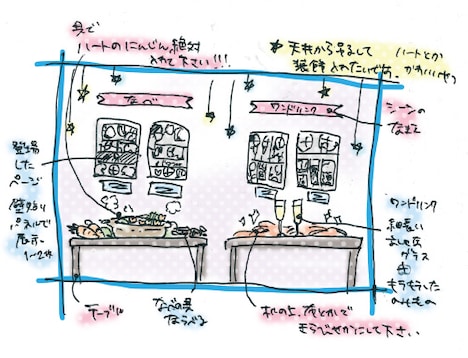 具で
ハートのにんじん、絶対
入れて下さい!!!
天井から吊るして
装飾入れたいです。
ハートとか
かわいいやつ
なべ
ワンドリンク
シーンの
なまえ
登場
した
ページ
壁貼り
パネルで
展示
1〜2枚
ワンドリンク
細長い
グラス
のみもの
テーブル
なべの具
ならべる
机の上、花とかで
して下さい